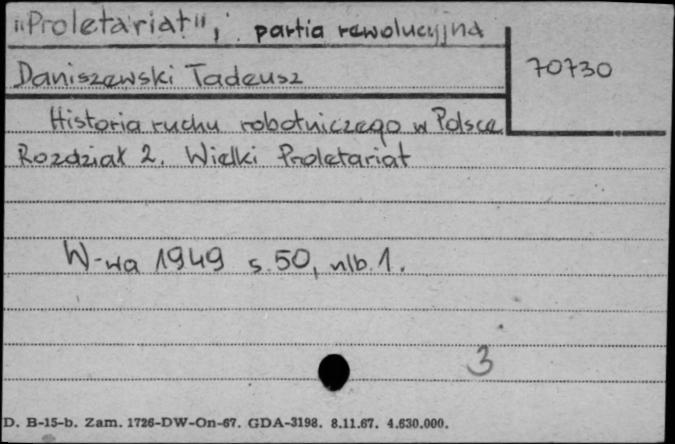 "Proletariat", partia rewolucyjna
70730
Daniszewski Tadeusz
Historia ruchu robotniczego w Polsce
Rozdział 2. Wielki Proletariat
W-wa 1949 s. 50, nlb. 1.
3
D. B-15-b. Zam. 1726-DW-On-67. GDA-3198. 8.11.67. 4.630.000.